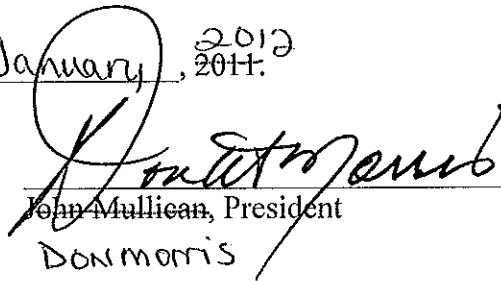 January, 2012
, 2011.
Don Morris
John Mullican, President
DON MORRIS